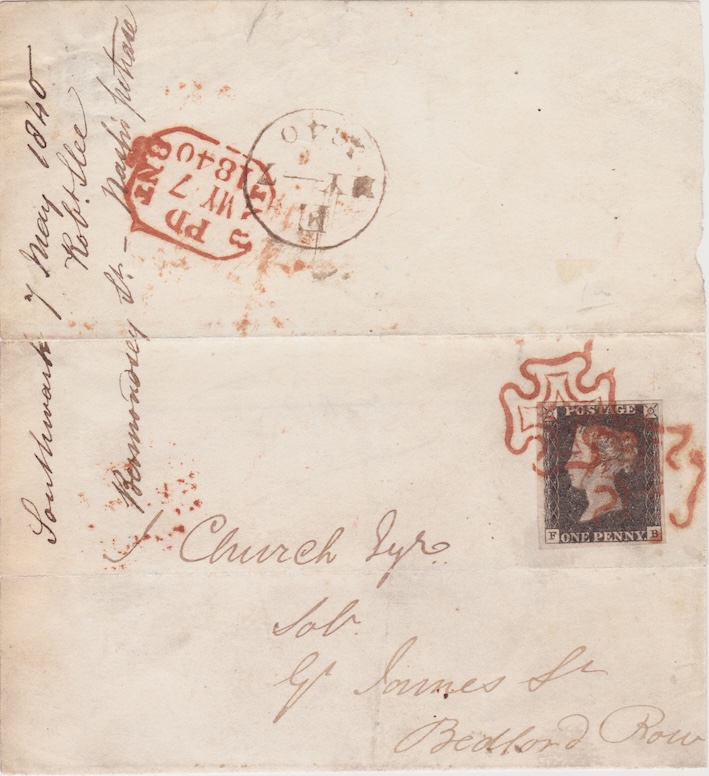 Southwark 7 May 1840
Robt Slee
Bermondsey St - purchase
PD
MY 7
1840
1840
POSTAGE
F ONE PENNY. B
J Church Esqr
Solr
Gt James St
Bedford Row